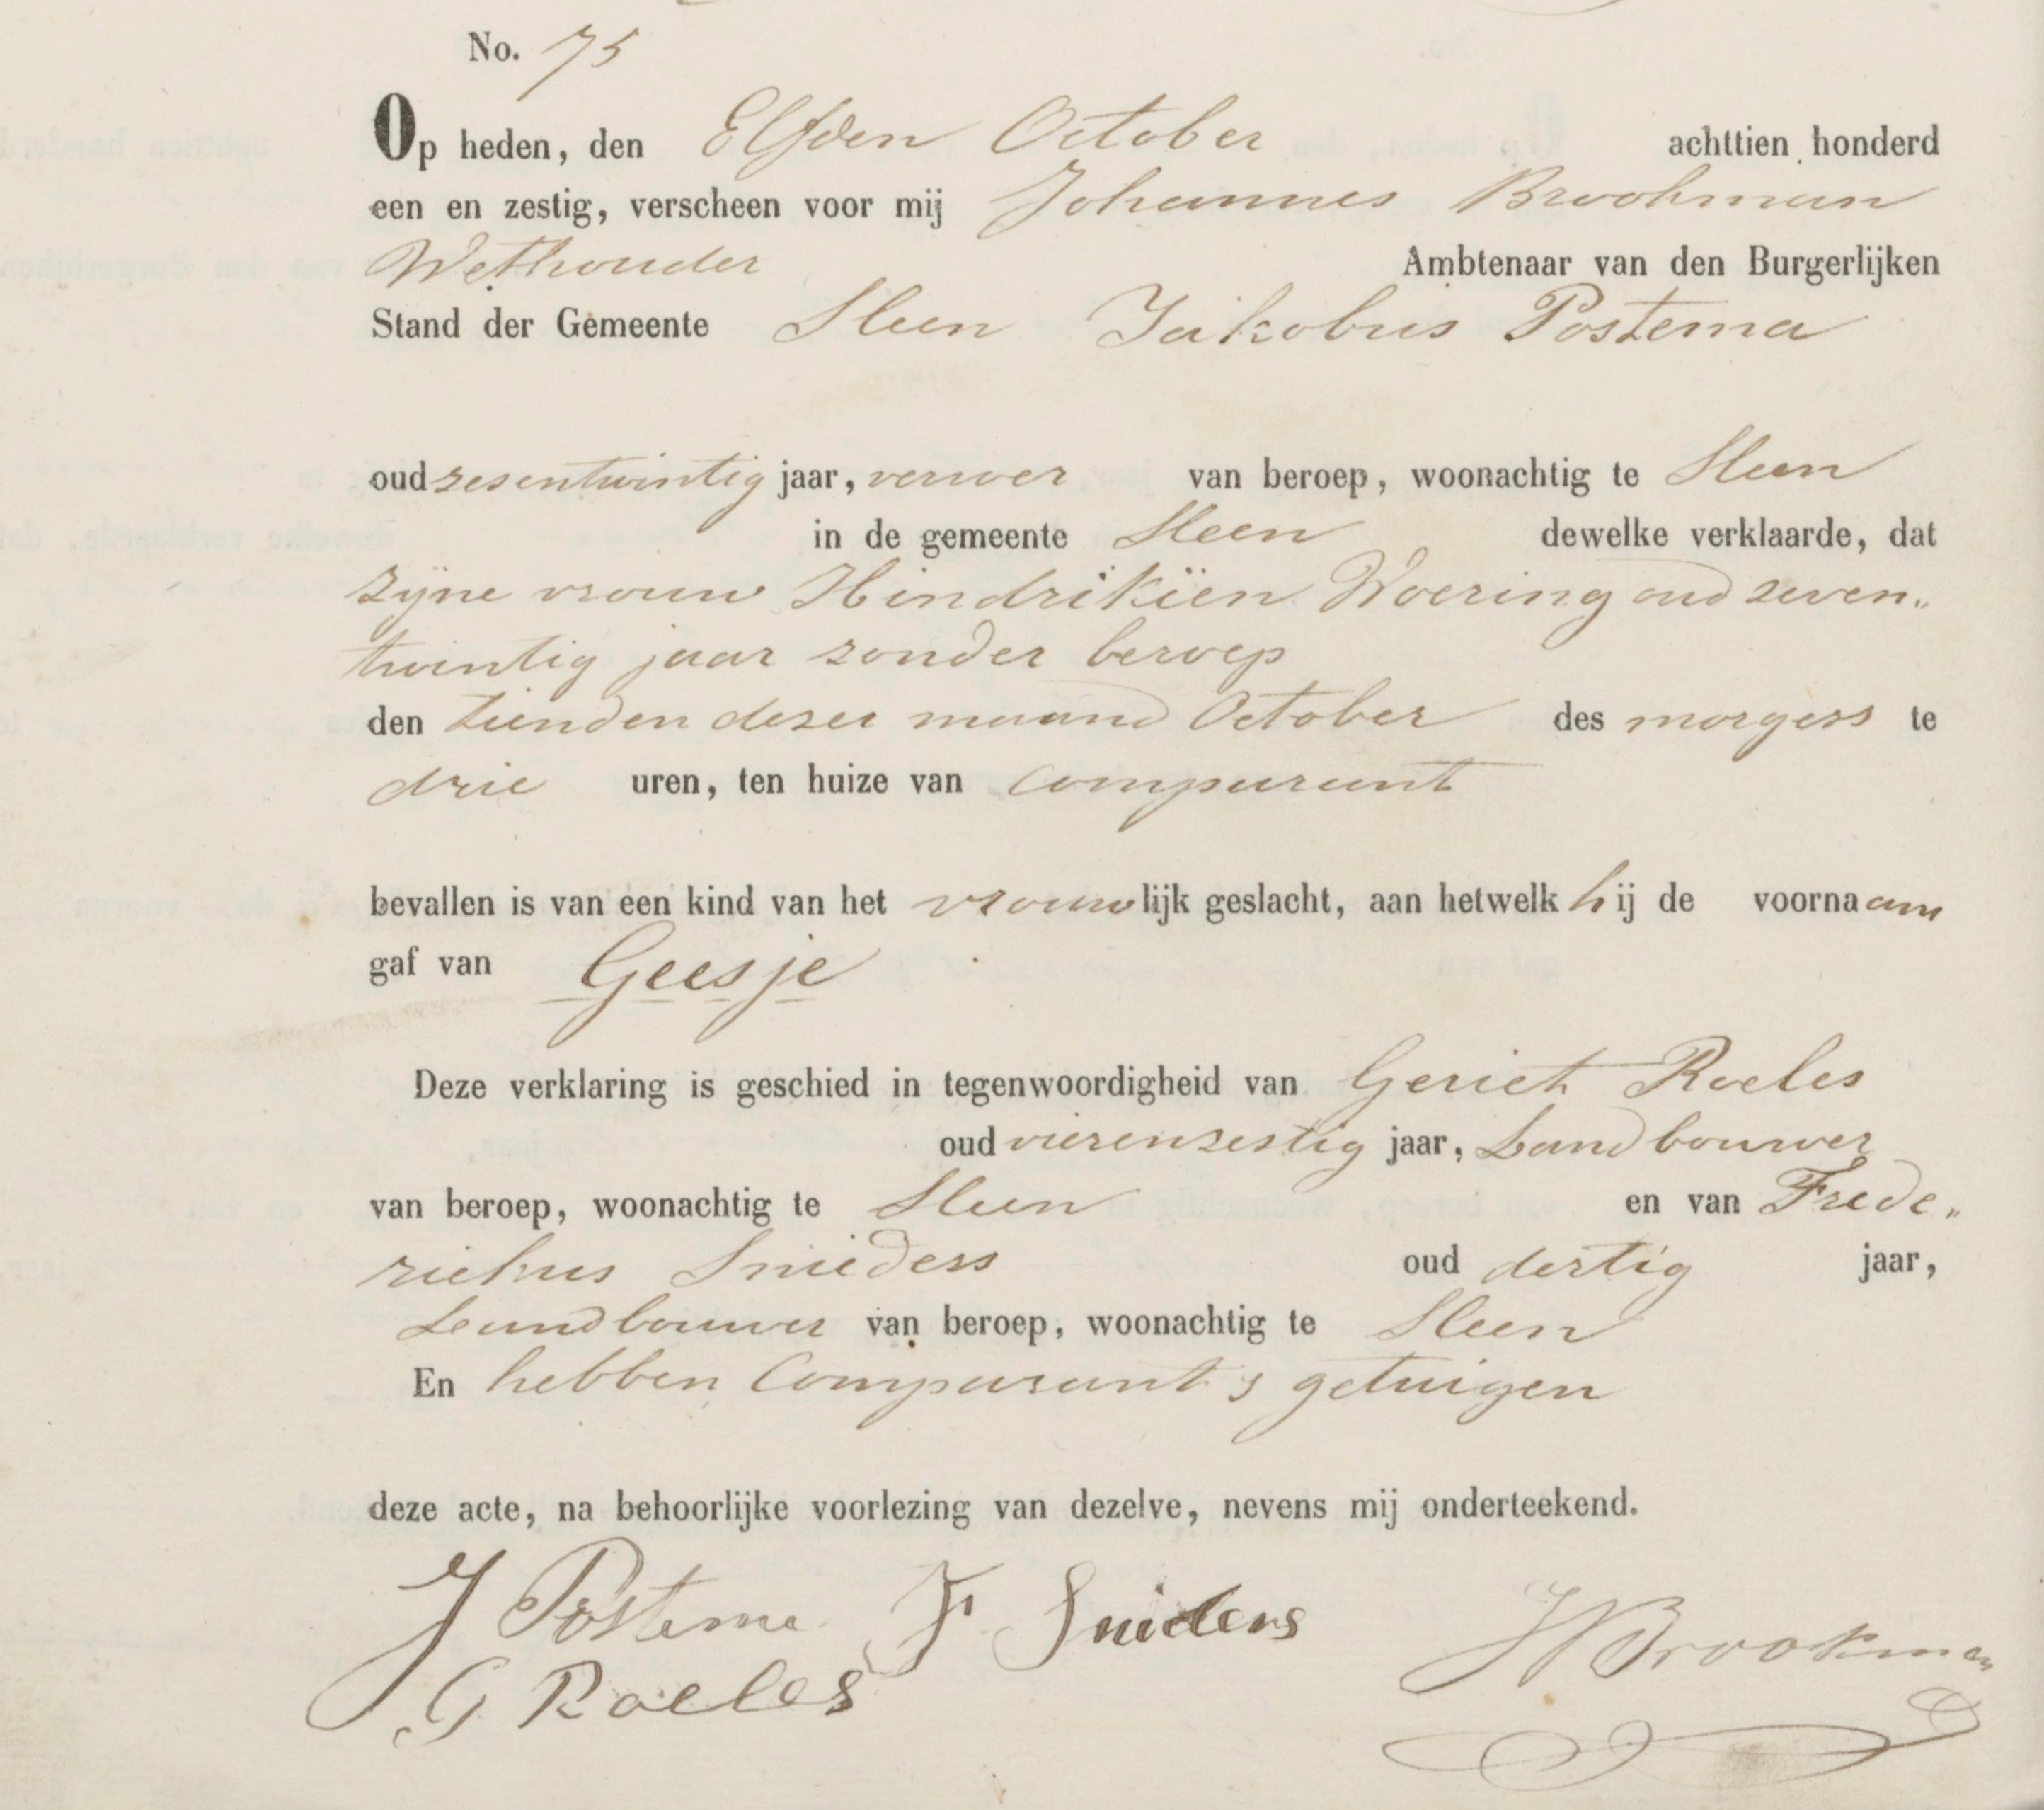 No. 75
Op heden, den Elfden October achttien honderd
een en zestig, verscheen voor mij Johannes Brookman
Wethouder Ambtenaar van den Burgerlijken
Stand der Gemeente Sleen Jakobus Postema
oud zesentwintig jaar, verwer van beroep, woonachtig te Sleen
in de gemeente Sleen dewelke verklaarde, dat
zijne vrouw Hindrikien Woering oud zeven„
twintig jaar zonder beroep
den tienden dezer maand October des morgens te
drie uren, ten huize van Comparant
bevallen is van een kind van het vrouwlijk geslacht, aan hetwelk hij de voornaam
gaf van Geesje
Deze verklaring is geschied in tegenwoordigheid van Geriet Roeles
oud vierenzestig jaar, Landbouwer
van beroep, woonachtig te Sleen en van Frede„
rickus Snieders oud dertig jaar,
Landbouwer van beroep, woonachtig te Sleen
En hebben Comparant & getuigen
deze acte, na behoorlijke voorlezing van dezelve, nevens mij onderteekend.
J Postema F Sniders
JBrookman
G Roeles